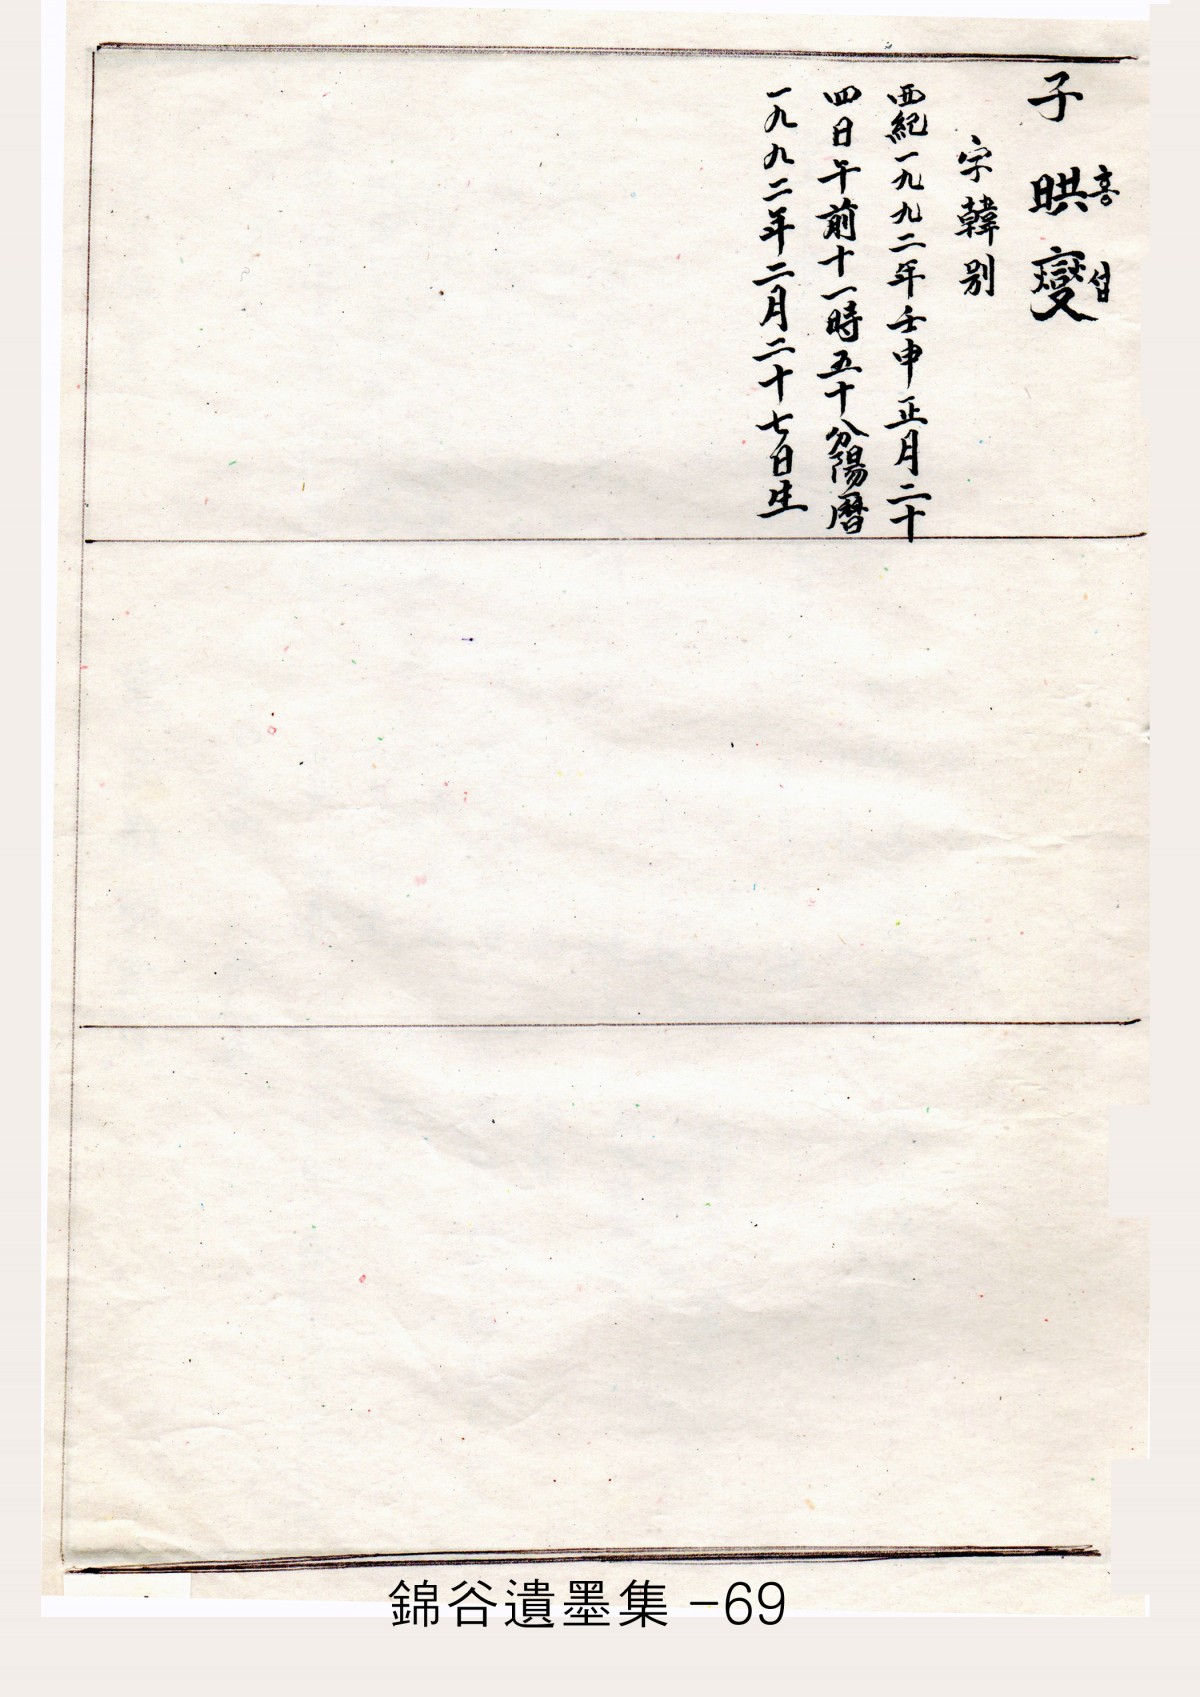 子 晎 燮
홍 섭
字 韓別
西紀一九九二年壬申正月二十
四日午前十一時五十分陽曆
一九九二年二月二十七日生
錦谷遺墨集 -69